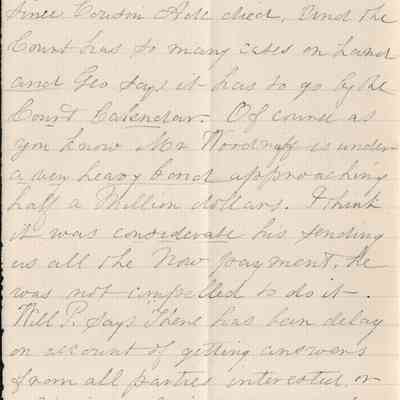 since Cousin Ade died. And the
Court has so many cases on hand
and Geo says it has to go by the
Court Calendar. Of course as
you know Mr Woodruff is under
a very heavy bond approaching
half a Million dollars. I think
it was considerate his sending
us all the Nov payment. he
was not compelled to do it.
Will P. says There has been delay
on account of getting answers
from all parties interested or